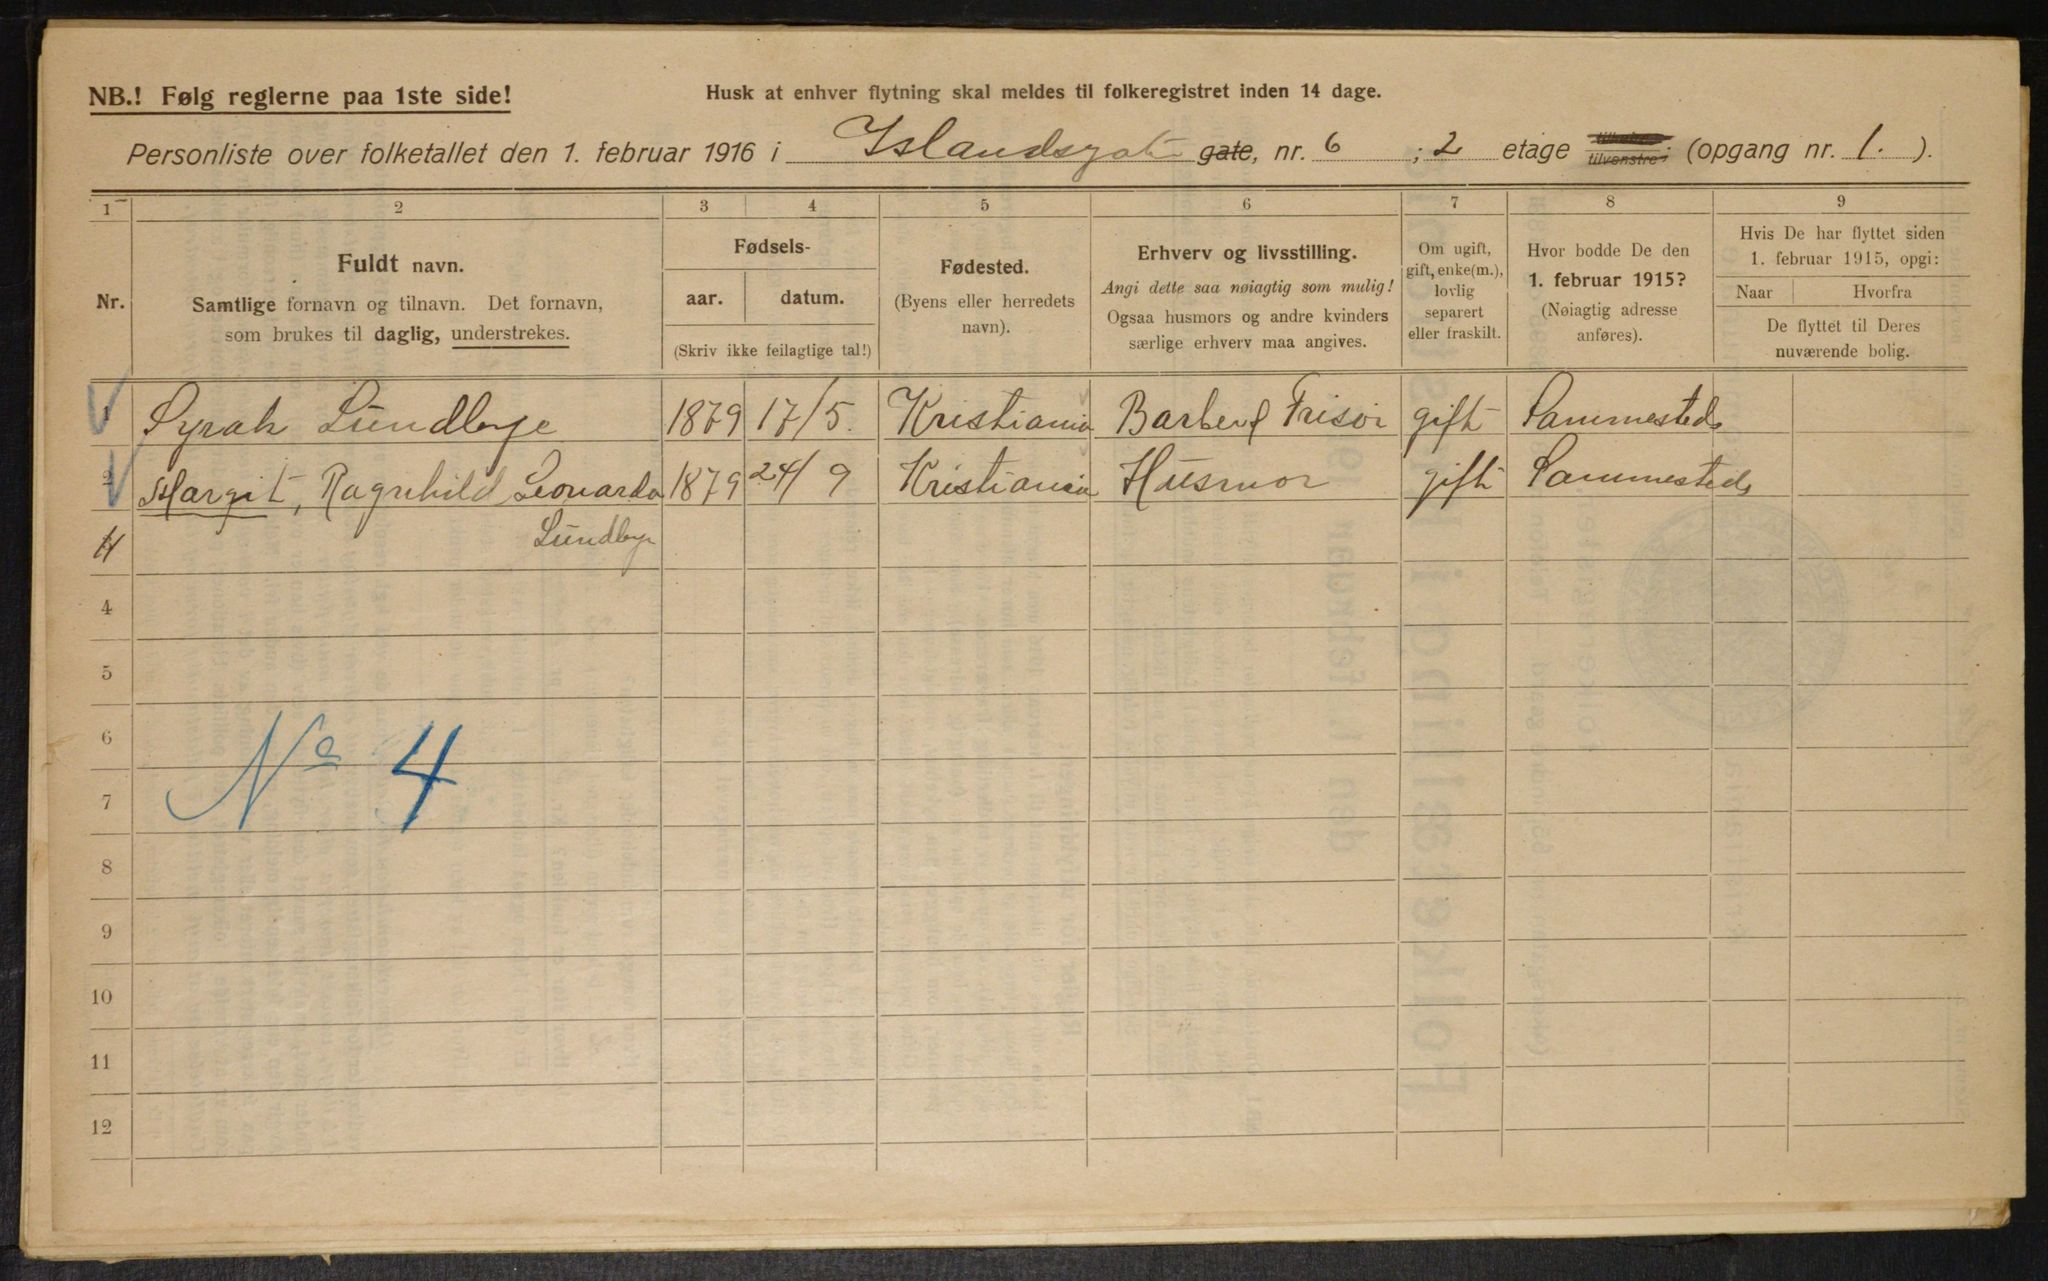 NB.! Følg reglerne paa 1ste side!
Husk at enhver flytning skal meldes til folkeregistret inden 14 dage.
Personliste over folketallet den 1. februar 1916 i Islandsgate gate, nr. 6 ; 2 etage tilvenstre; (opgang nr. 1. ).
1 2 3 4 5 6 7 8 9
Nr.
Fuldt navn.
Samtlige fornavn og tilnavn. Det fornavn,
som brukes til daglig, understrekes.
Fødsels-
aar. datum.
(Skriv ikke feilagtige tal!)
Fødested.
(Byens eller herredets
navn).
Erhverv og livsstilling.
Angi dette saa nøiagtig som mulig!
Ogsaa husmors og andre kvinders
særlige erhverv maa angives.
Om ugift,
gift, enke(m.),
lovlig
separert
eller fraskilt.
Hvor bodde De den
1. februar 1915?
(Nøiagtig adresse
anføres).
Hvis De har flyttet siden
1. februar 1915, opgi:
Naar Hvorfra
De flyttet til Deres
nuværende bolig.
1 Syrak Lundbye 1879 17/5. Kristiania Barber & Frisör gift Sammesteds
2 Margit, Ragnhild Leonarda 1879 24/9 Kristiania Husmor gift Sammesteds
Lundbye
4
4
5
6
7
No 4
8
9
10
11
12